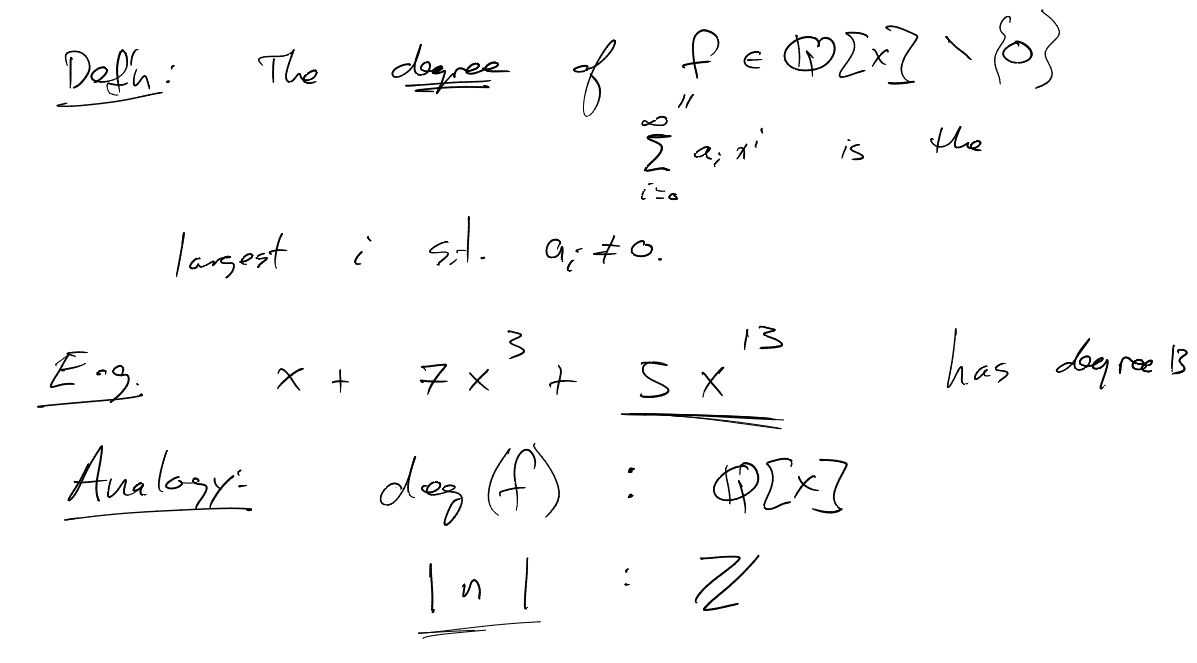 Def'n: The degree of f ∈ ℚ[x] \ {0}
"
∞
∑ aᵢ xⁱ is the
i=0
largest i s.t. aᵢ ≠ 0.
E.g. x + 7x³ + 5x¹³ has degree 13
Analogy: deg(f) : ℚ[x]
|n| : ℤ